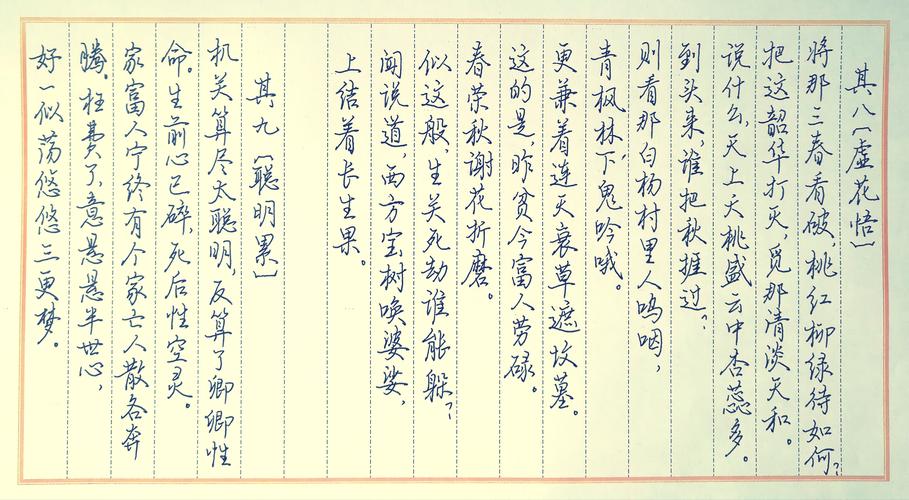 其八〔虚花悟〕
将那三春看破,桃红柳绿待如何?
把这韶华打灭,觅那清淡天和。
说什么,天上夭桃盛云中杏蕊多。
到头来,谁把秋捱过?
则看那白杨村里人呜咽,
青枫林下,鬼吟哦。
更兼着连天衰草遮坟墓。
这的是,昨贫今富人劳碌。
春荣秋谢花折磨。
似这般,生关死劫谁能躲?
闻说道,西方宝树唤婆娑,
上结着长生果。
其九〔聪明累〕
机关算尽太聪明,反算了卿卿性
命。生前心已碎,死后性空灵。
家富人宁终有个家亡人散各奔
腾。枉费了,意悬悬半世心,
好一似荡悠悠三更梦。